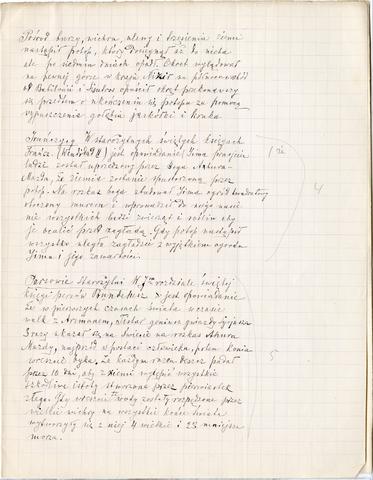 Pośród burzy, wichru, ulewy i trzęsienia ziemi
nastąpił potop, który dosięgnął aż do nieba
ale po siedmiu dniach opadł. Okręt wylądował
na pewnej górze w kraju Nizir na północ-wschód
od Babilonu i opuścił okręt przekonawszy
się przedtem o ukończeniu się potopu za pomocą
wypuszczenia gołębia jaskółki i kruka.
Irańczycy W starożytnych świętych księgach
jest opowiadanie, Jima praojciec
ludzi został uprzedzony przez boga Ahura-
Mazda, że ziemia zostanie spustoszona przez
potop. Na rozkaz boga zbudował Jima ogród kwadratowy
otoczony murem i wprowadził do niego nasienie
wszystkich ludzi zwierząt i roślin aby
je ocalić przed zagładą. Gdy potop nastąpił
wszystko uległo zagładzie z wyjątkiem ogrodu
Jima i jego zawartości.
Persowie Starożytni W 7ym rozdziale świętej
księgi persów Bundehesz jest opowiadanie
że w pierwszych czasach świata w czasie
walk z Arimanem, Tistar geniusz gwiazdy Syriusza
3 razy ukazał się na świecie na rozkaz Ahura
Mazdy, najprzód w postaci człowieka, potem konia
wreszcie byka. Za każdym razem deszcz padał
przez 10 dni, aby z ziemi wytępić wszystkie
szkodliwe istoty stworzone przez pierwiastek
złego. Gdy wreszcie wody zostały rozpędzone przez
wielkie wichry na wszystkie końce świata
wytworzyły się z niej 4 wielkie i 23 mniejsze
morza.
4
5